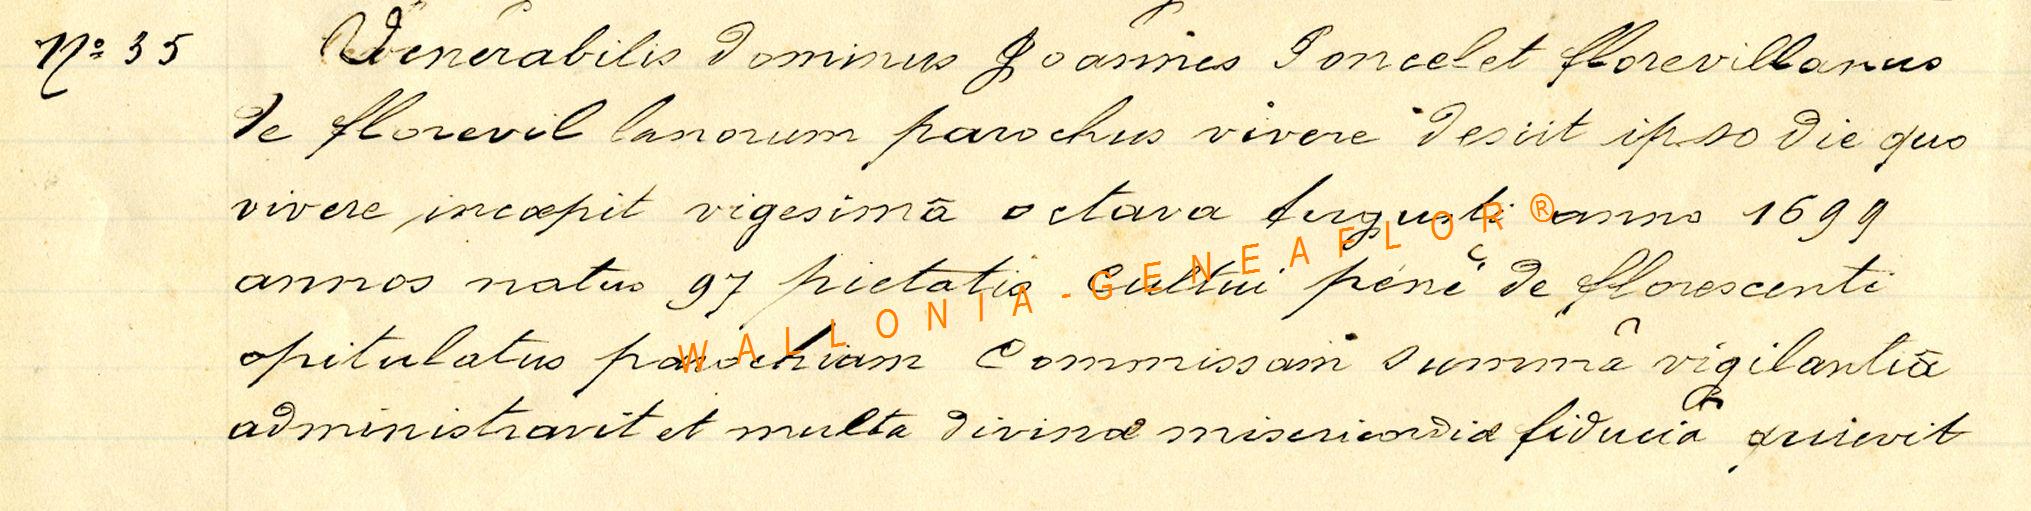 Nº 35 Venerabilis dominus Joannes Poncelet florevillanus
de florevil lanorum parochus vivere desiit ipso die quo
vivere incœpit vigesimâ octava augusti anno 1699
annos natus 97 pietatis Cultui pénè de florescenti
opitulatus parochiam Commissam summâ vigilantiâ
administravit et multa divinæ misericordiæ fiduciâ quievit
WALLONIA-GENEAFLOR®